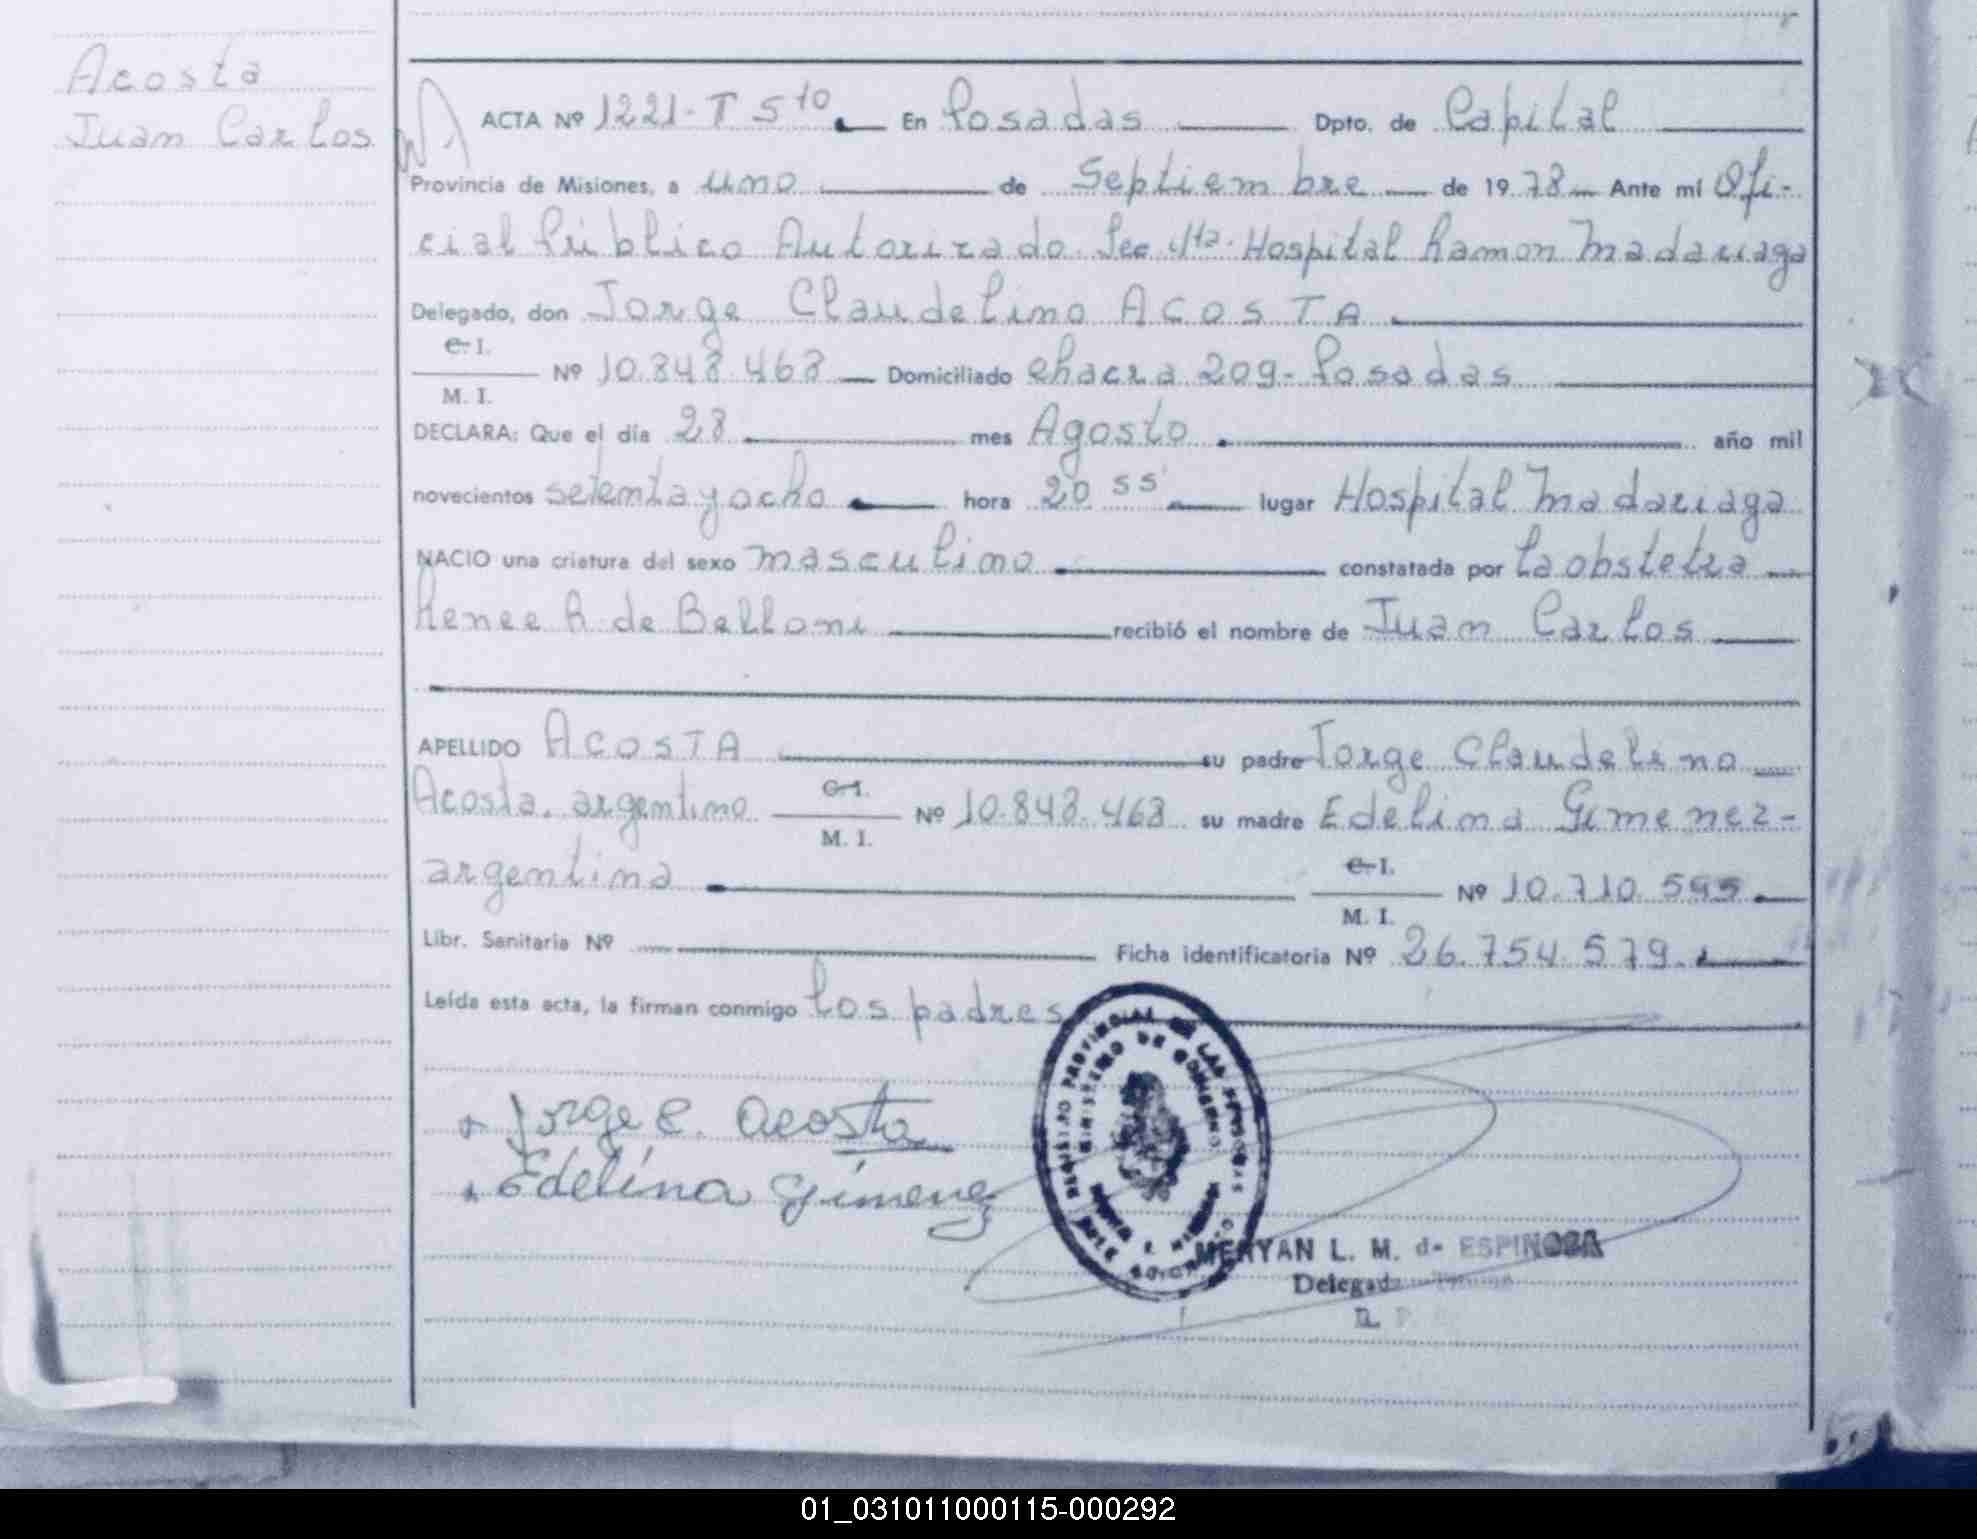 Acosta
Juan Carlos
ACTA Nº 1221-T 5to En Posadas Dpto. de Capital
Provincia de Misiones, a uno de Septiembre de 1978 Ante mí Ofi-
cial Público Autorizado Sec 4ta. Hospital Ramon Madariaga
Delegado, don Jorge Claudelino ACOSTA
C. I.
M. I.
Nº 10.848.468 Domiciliado chacra 209- Posadas
DECLARA: Que el día 28 mes Agosto año mil
novecientos setenta y ocho hora 20 55' lugar Hospital Madariaga
NACIO una criatura del sexo masculino constatada por la obstetra
Renee R. de Belloni recibió el nombre de Juan Carlos
APELLIDO ACOSTA su padre Jorge Claudelino
Acosta. argentino C. I. M. I. Nº 10.848.468 su madre Edelina Gimenez-
argentina C. I. M. I. Nº 10.710.595
Libr. Sanitaria Nº Ficha identificatoria Nº 26.754.579.
Leída esta acta, la firman conmigo los padres
Jorge C. Acosta
Edelina Gimenez
REGISTRO PROVINCIAL DE LAS PERSONAS
MINISTERIO DE GOBIERNO
MERYAN L. M. de ESPINOSA
Delegada
01_031011000115-000292